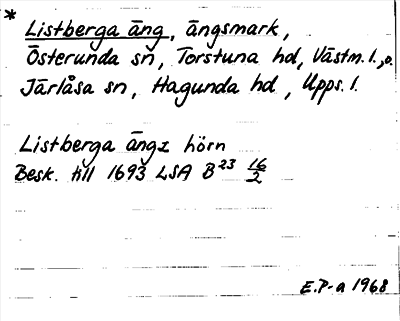 *
Listberga äng, ängsmark,
Österunda sn, Torstuna hd, Västm. l., o.
Järlåsa sn, Hagunda hd, Upps. l.
Listberga ängz hörn
Besk. till 1693 LSA B23 16/2
E.P-a 1968